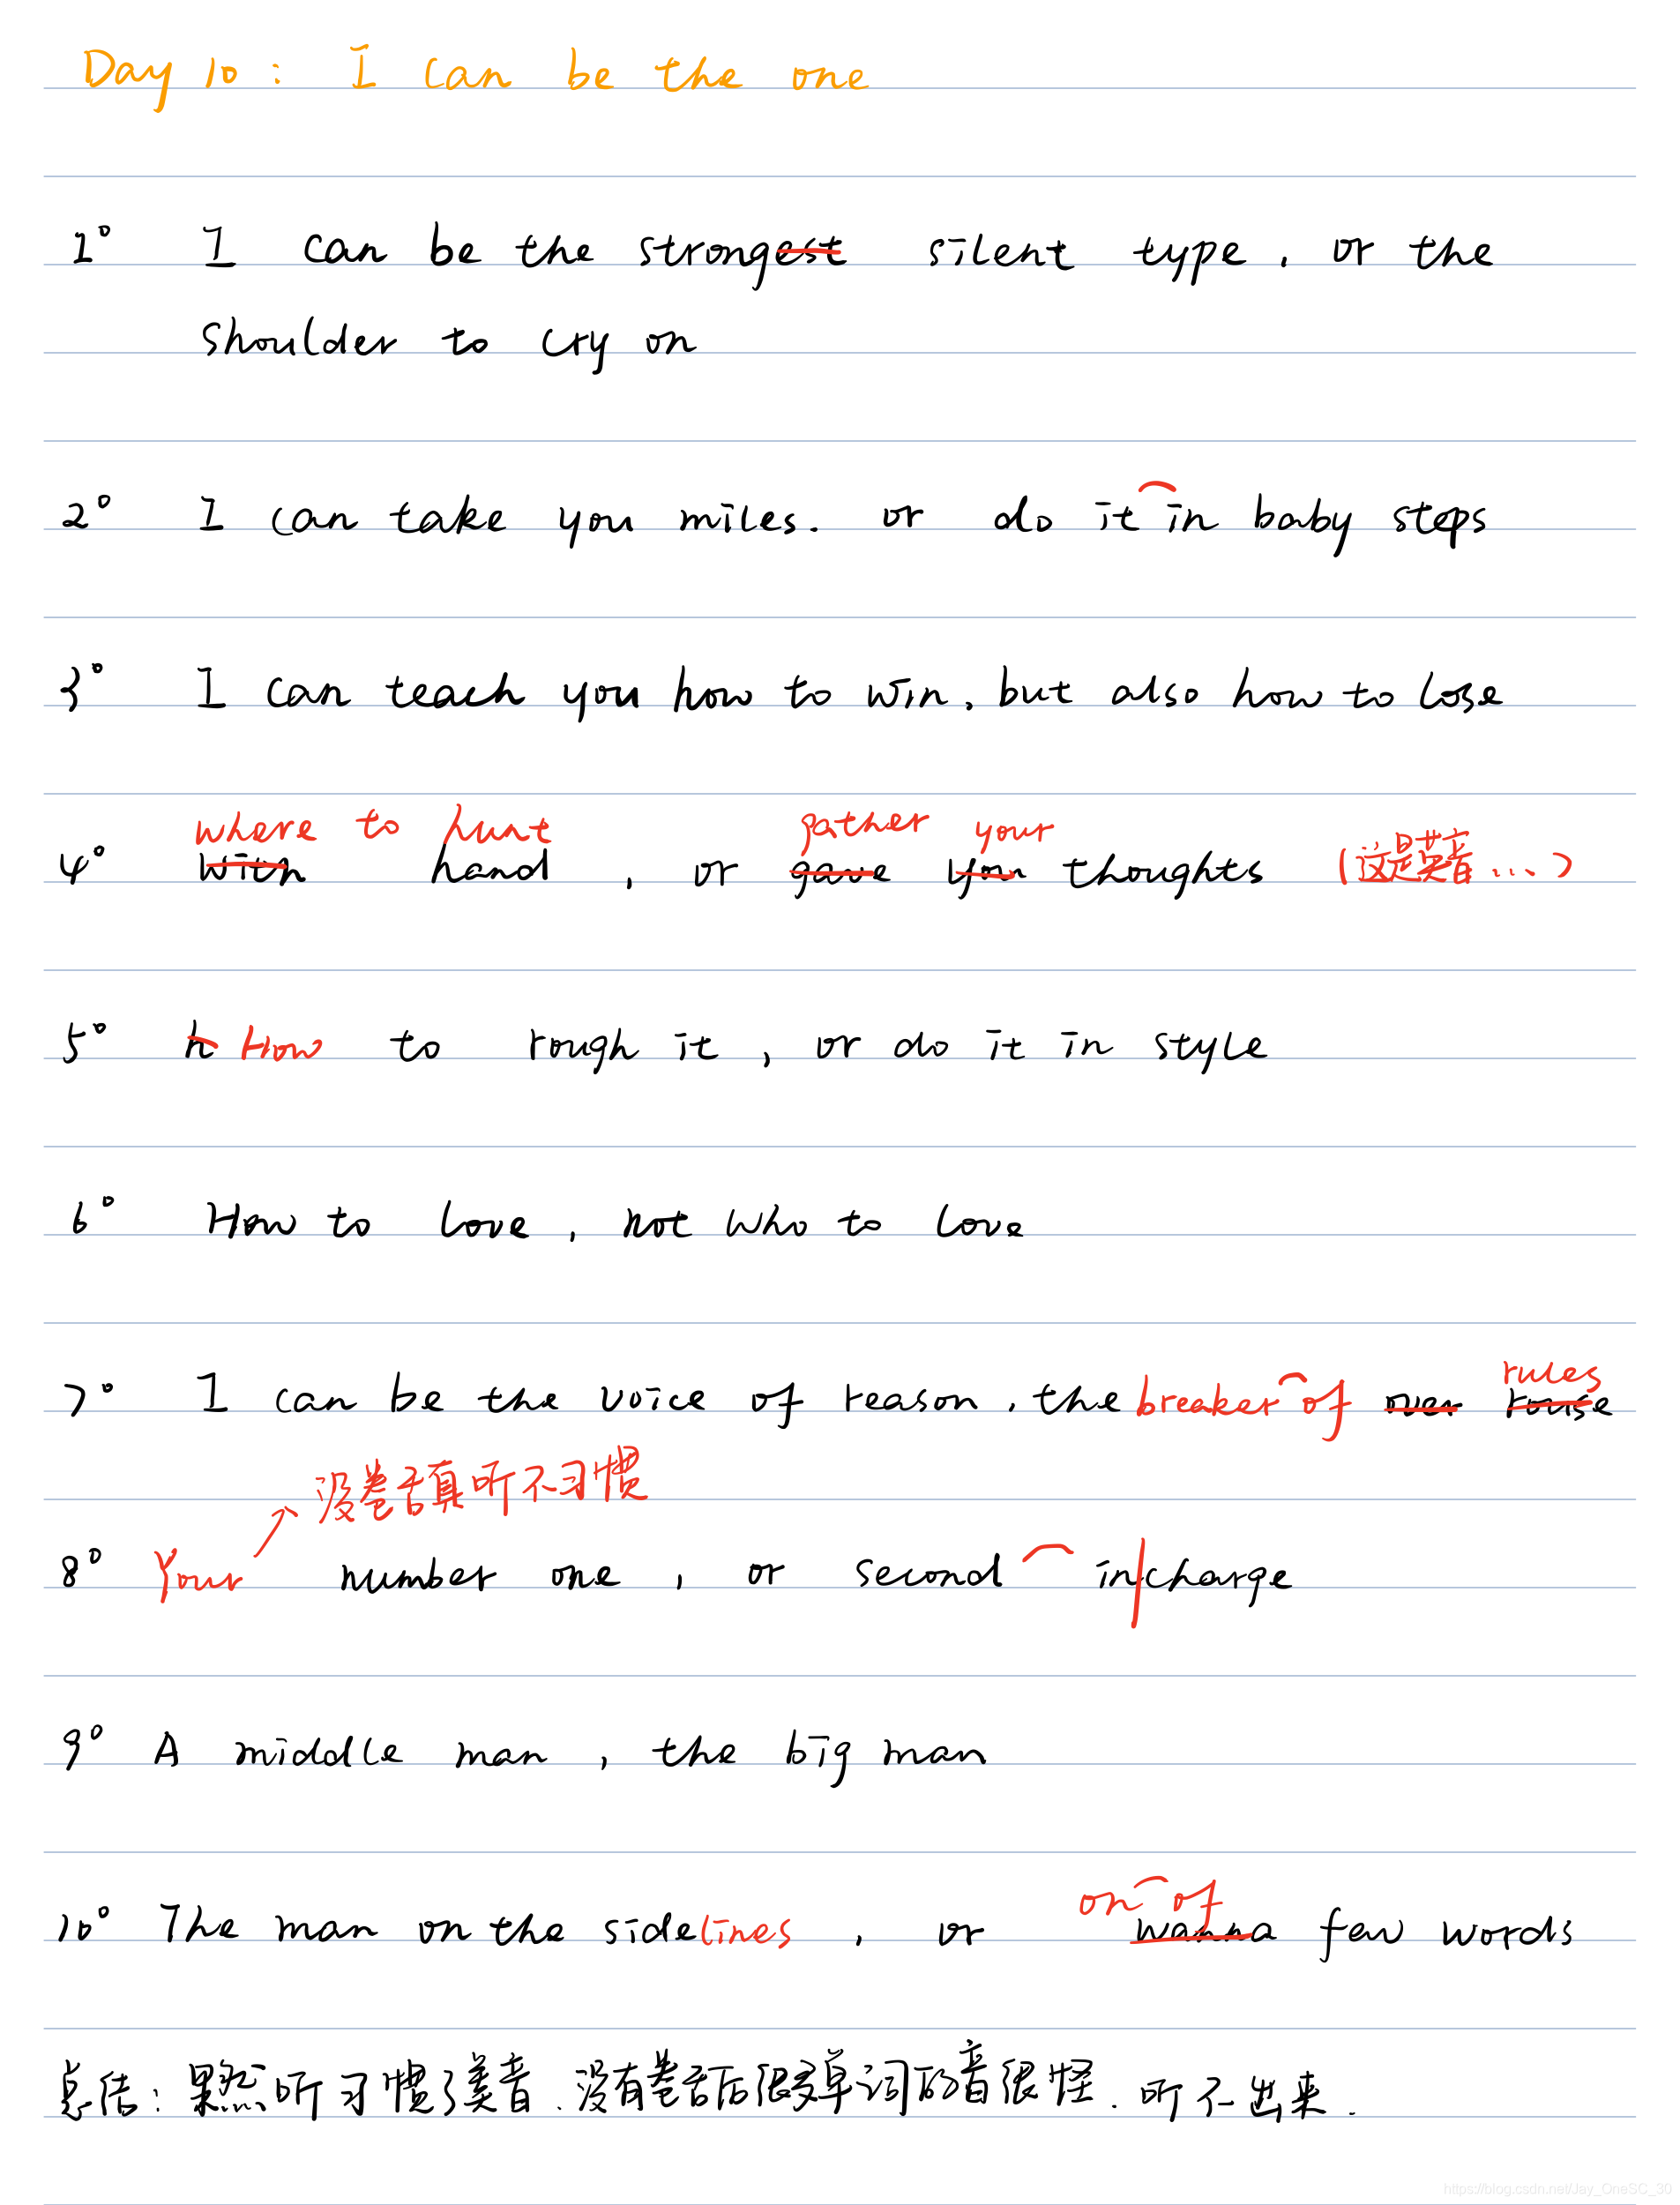 Day 10: I can be the one
1° I can be the strongest silent type, or the
shoulder to cry on
2° I can take you miles. or do it in baby steps
3° I can teach you how to win, but also how to lose
where to hunt gather your
4° with hand, or gave you thoughts (这是英音...)
5° h How to rough it, or do it in style
6° How to love, not who to love
rules
7° I can be the voice of reason, the breaker of over rouse
没卷舌真听不习惯
8° Your number one, or second in charge
9° A middle man, the big man
on of
10° The man on the sidelines, or wanna few words
总结: 果然听习惯了美音、没有卷舌后很多单词的音很怪. 听不出来.
https://blog.csdn.net/Jay_OneSC_30